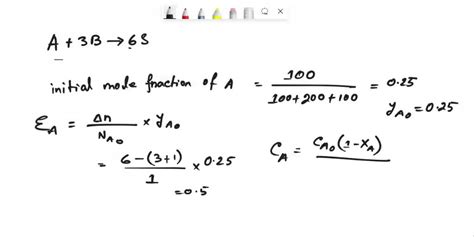 A + 3B → 6S
initial mole fraction of A = 100 / (100+200+100) = 0.25
y_A0 = 0.25
ε_A = Δn / N_A0 × y_A0
= (6 – (3+1)) / 1 × 0.25
= 0.5
C_A = C_A0 (1 – X_A)